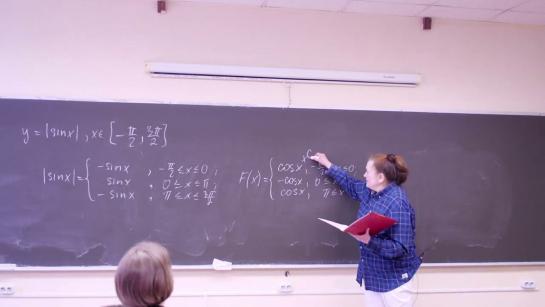 y = |sinx| , x∈ [-π/2, 3π/2]
|sinx| = { -sinx , -π/2 ≤ x ≤ 0 ;
sinx , 0 ≤ x ≤ π ;
-sinx , π ≤ x ≤ 3π/2
F(x) = { cosx + C , ≤ 0
-cosx , 0 ≤
cosx , π ≤